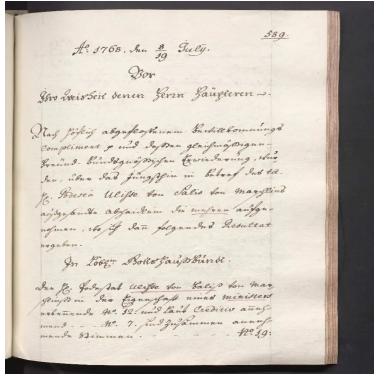 589.
Aō. 1768. den 8/19 July.
Vor
Ihro Weisheit denen Herrn Häupteren
Nach höflich abgestattenem Bewillkommnungs
Compliment & und dessen gleichmässigen
freund-bundsgnössischen Erwiederung, wur
den, über das
Hr. Ulisse von Salis von Marschlins
die mehren aufge-
nohmen, folgendes Resultat
ergeben.
In Löbn. Gottshaussbundt.
Der Hr. Podestat Ulisse von Salis von Mar
schlins in der Eigenschaft eines Ministers
erkennende No. 12. und Creditiv anneh
mend No. 7. und zusammen anneh-
mende Stimmen No 19.